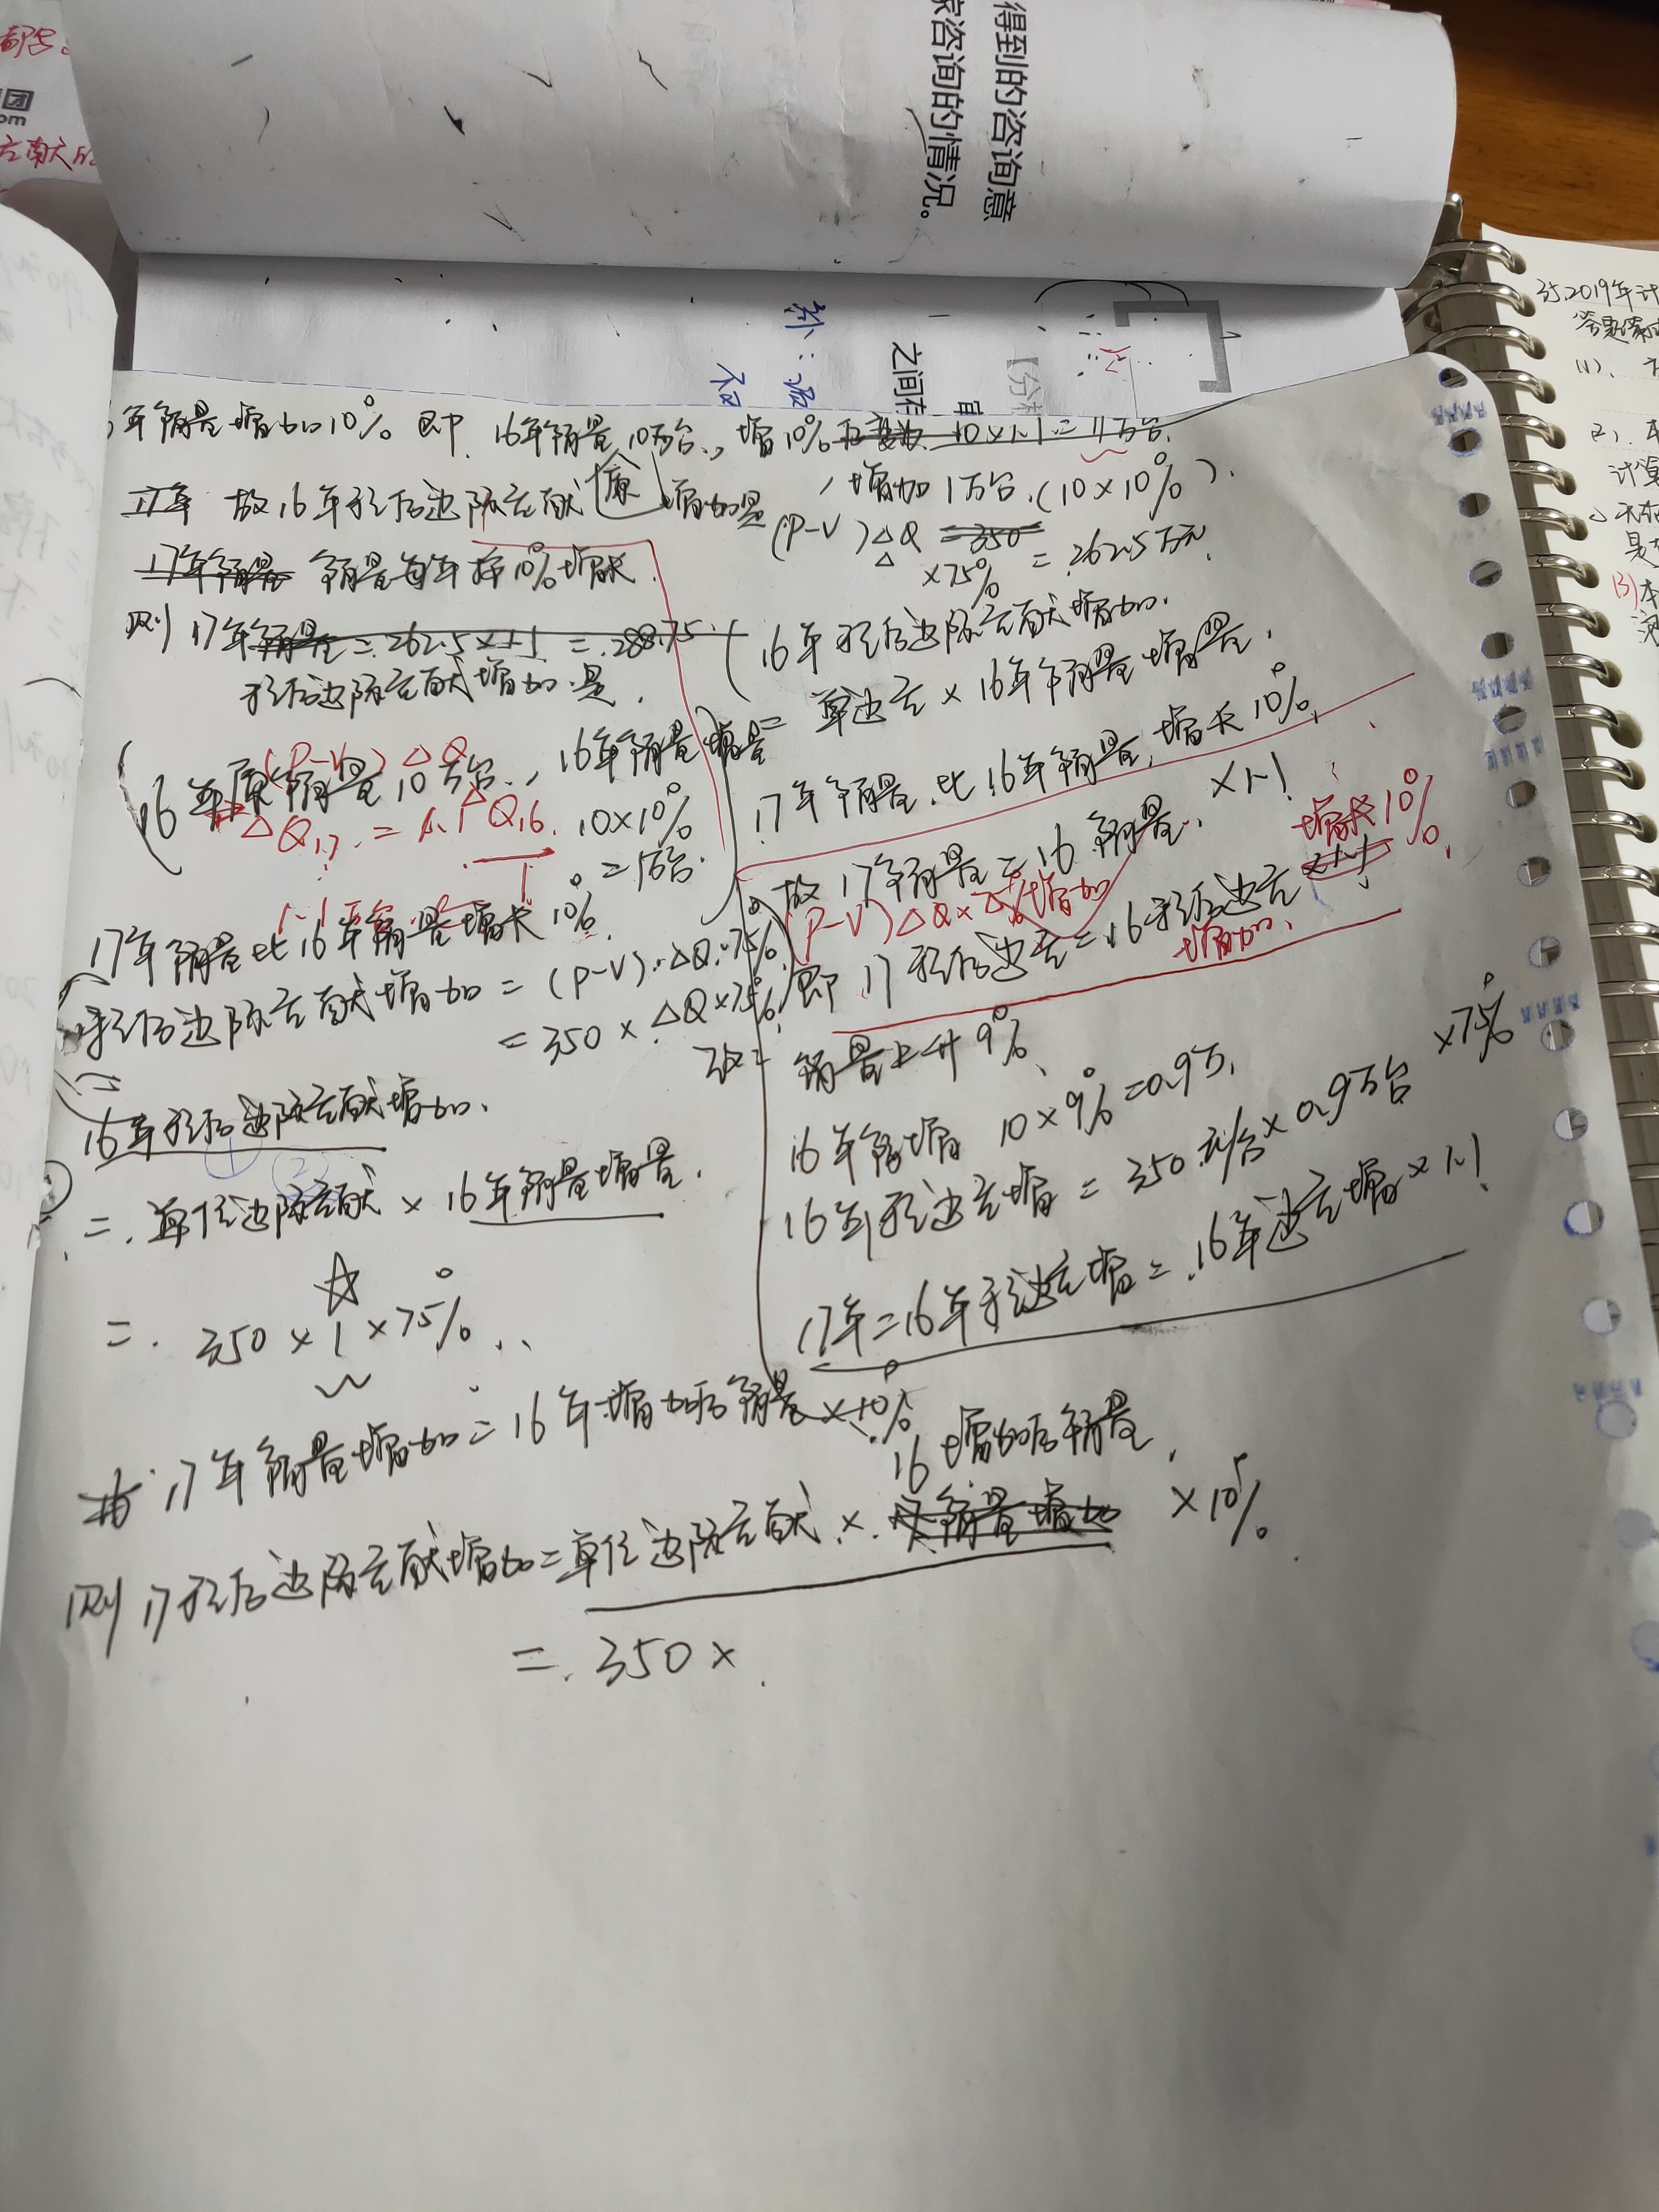 得到的咨询意
家咨询的情况。
团
om
补:
之间存
【分
年销量增加10% 即 16年销量10万台, 增10% 10×1.1=11万台.
增加1万台.(10×10%).
故16年税后边际贡献 原 增加是
(P-V)△Q =350
×75% =262.5万元.
17年销量 销量每年按10%增长.
则17年销量=262.5×1.1=288.75.
税后边际贡献增加是.
(P-V)△Q
16年原销量10万台, 16年销量增量
△Q17=1.1△Q16.
10×10%
=1万台.
17年销量比16年销量增长10%.
税后边际贡献增加=(P-V).△Q.75%
=350×△Q×75%
16年税后边际贡献增加.
=.单位边际贡献×16年销量增量.
=.350×1×75%
16年税后边际贡献增加.
=单边贡×16年销量增量.
17年销量比16年销量增长10%.
故17年销量=16销量.×1.1
(P-V)△Q×
增长10%
即17税后边贡=16税后边贡×1.1
增加.
销量上升9%
16年销增 10×9%=0.9万.
16年税边贡增=350元/台×0.9万台×75%
17年=16年税边贡增=.16年边贡增×1.1
17年销量增加=16年增加后销量×10%
16增加后销量
则17税后边际贡献增加=单位边际贡献×.销量增加×10%
=.350×.
对2019年计
(1).
(2).
计算
(3)本